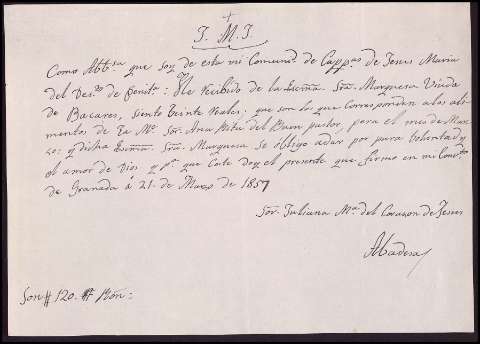 +
J. M. J.
Como Abb.sa que soy de esta mi Comund. de Capp.as de Jesus Maria
del Des.to de Penito: He recibido de la Exma. Sra. Marquesa Viuda
de Bacares, siento veinte reales. que son los que corresponden a los ali-
mentos de la Me. Sor. Ana Rita del Buen pastor, para el mes de Mar-
zo: q dicha Exma. Sra. Marquesa se obligo a dar por pura voluntad y
el amor de Dios, y pa. que Coste doy el presente que firmo en mi Convto.
de Granada á 21. de Marzo de 1857
Sor. Juliana Ma. del Corazon de Jesus
Abadesa
Son # 120. # Rón: